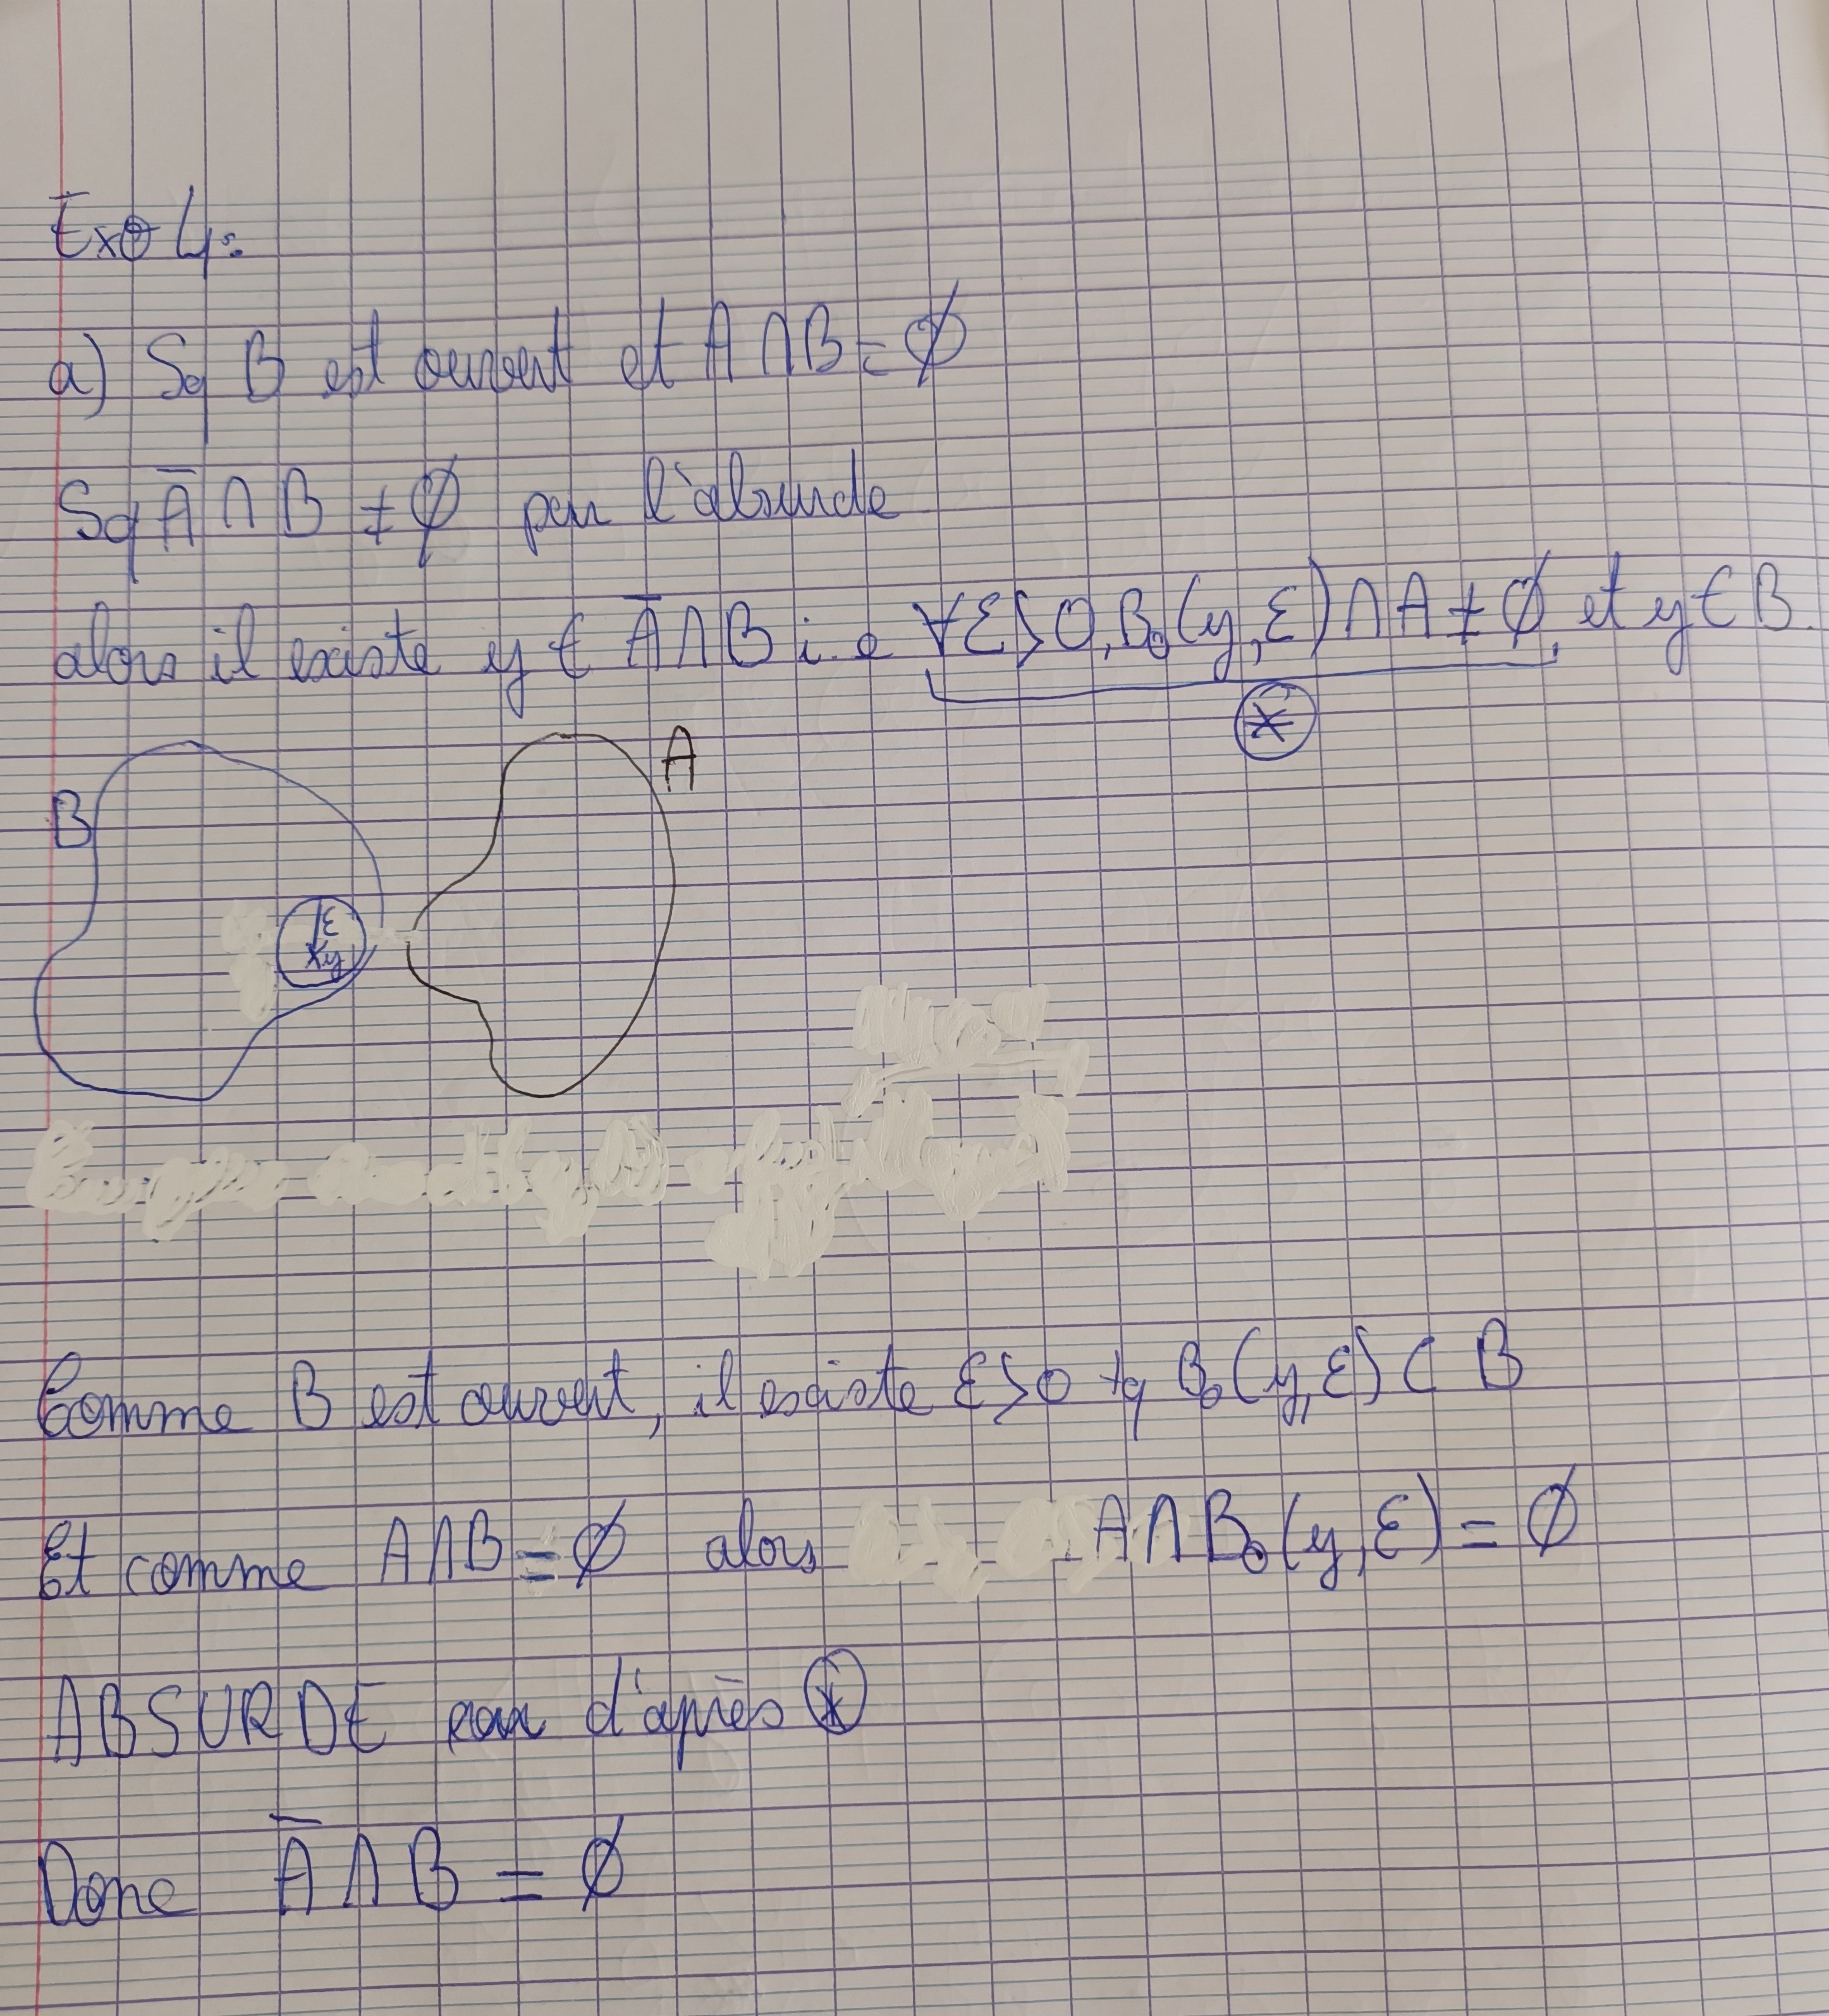 Exo 4:
a) Sq B est ouvert et A ∩ B = ∅
Sq A̅ ∩ B ≠ ∅ par l'absurde
alors il existe y ∈ A̅ ∩ B i.e ∀ε>0, B₀(y,ε) ∩ A ≠ ∅, et y ∈ B.
⊛
B
A
ε
y
Comme B est ouvert, il existe ε>0 tq B₀(y,ε) ⊂ B
Et comme A ∩ B = ∅ alors A ∩ B₀(y,ε) = ∅
ABSURDE car d'après ⊛
Donc A̅ ∩ B = ∅